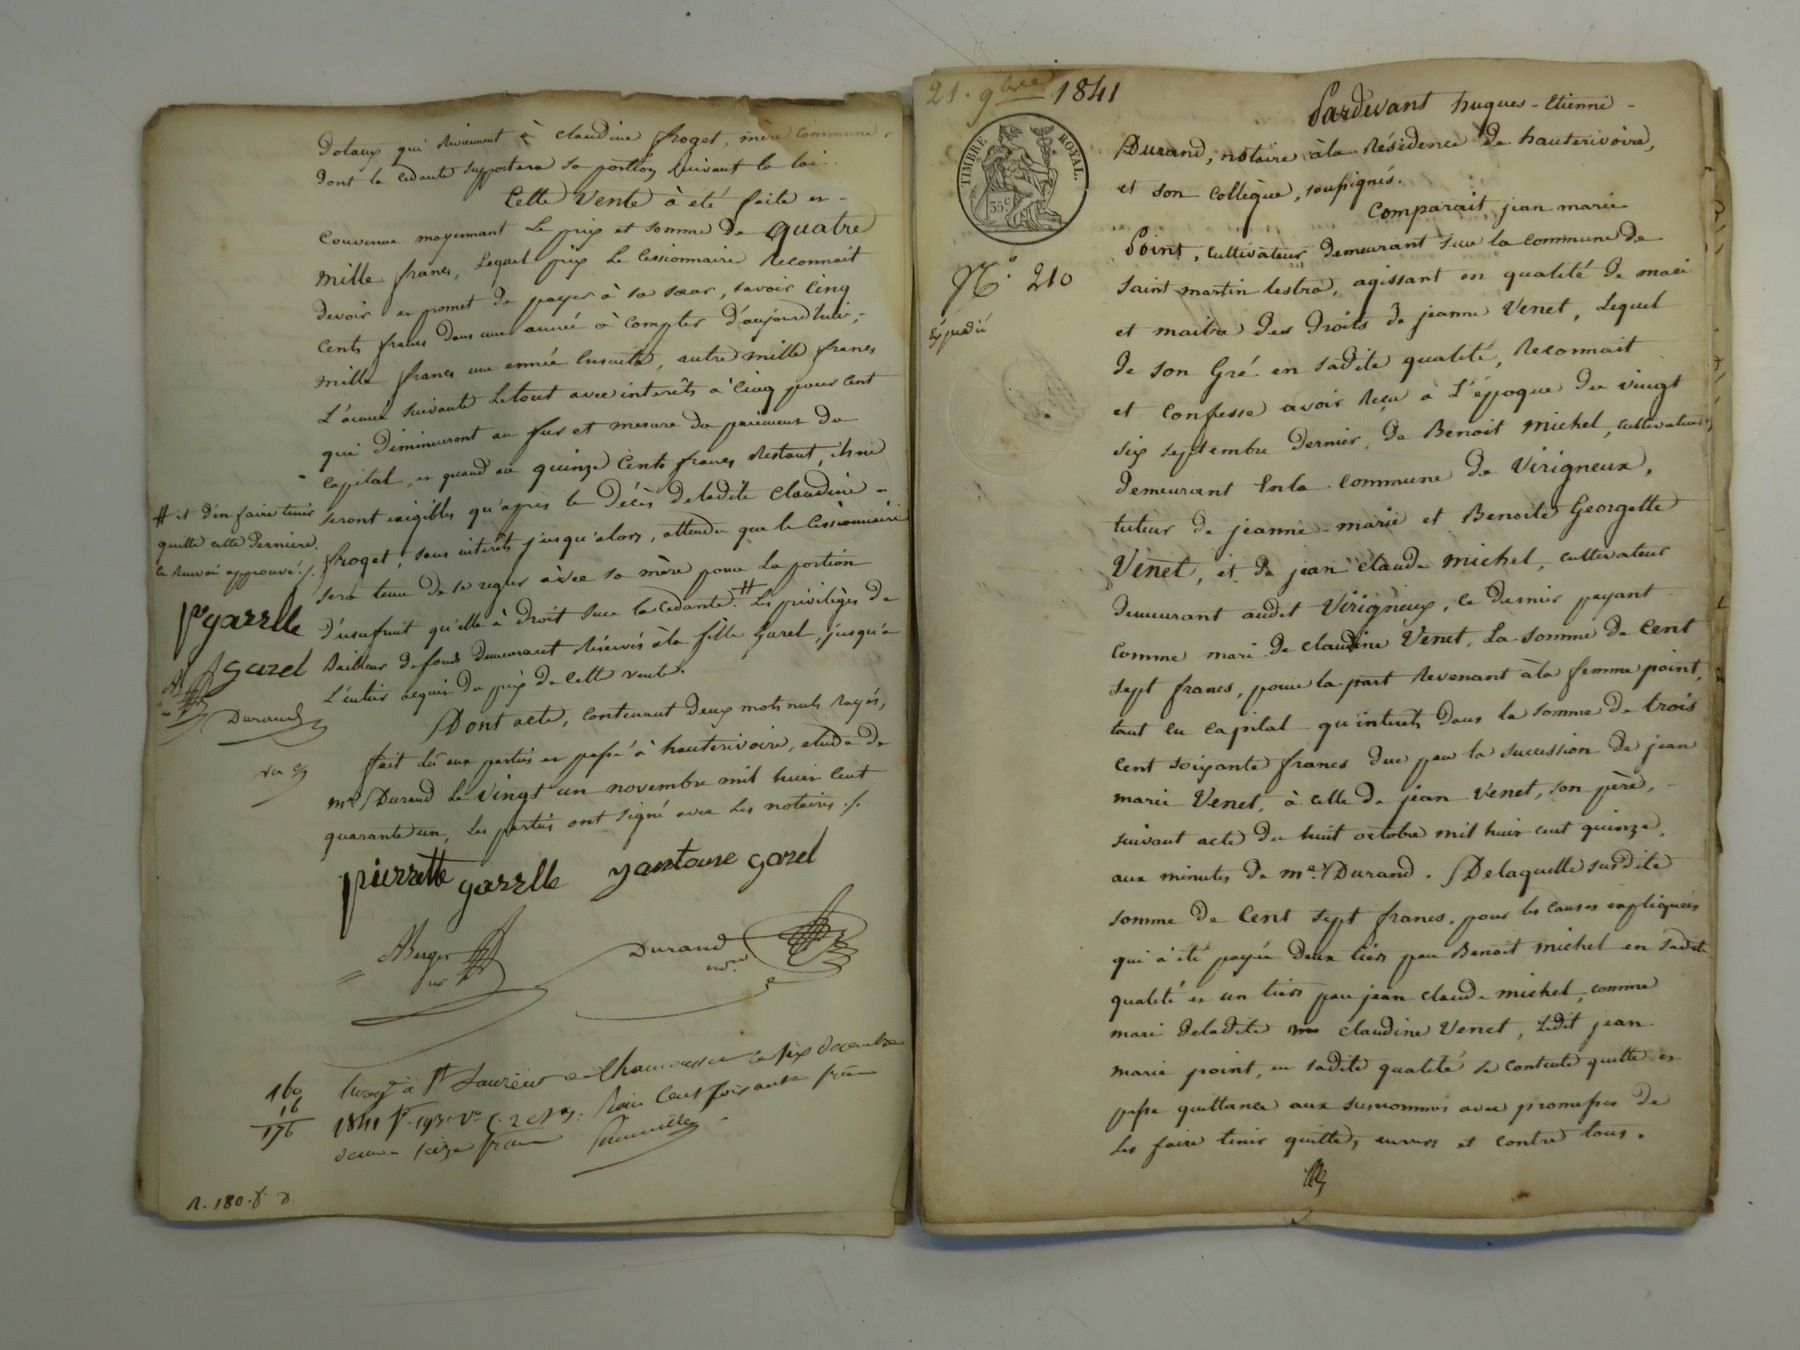 dotaux qui reviennent à claudine froget, mère commune,
dont la cédante supportera sa portion suivant la loi.
Cette vente à été faite et
convenue moyennant le prix et somme de quatre
mille francs, lequel prix le cessionnaire reconnait
devoir et promet de payer à sa sœur, savoir cinq
cents francs dans une année à compter d'aujourd'hui,
mille francs une année ensuite, autre mille francs
l'année suivante le tout avec intérêts à cinq pour cent
qui diminueront au fur et mesure du paiement du
capital, et quand aux quinze cents francs restant, ils ne
seront exigibles qu'après le décès de ladite claudine
froget, sans intérêts jusqu'alors, attendu que le cessionnaire
sera tenu de se regler avec sa mère pour la portion
d'usufruit qu'elle à droit sur la cédante. # Les privilèges de
bailleur de fonds demeurant réservés à la fille garel, jusqu'à
l'entier acquit du prix de cette vente.
Dont acte, contenant deux mots nuls rayés,
fait lû aux parties et passé à hauterivoire, étude de
me Durand le vingt un novembre mil huit cent
quarante un, les parties ont signé avec les notaires ./.
# et d'en faire tenir
quitte cette dernière.
le renvoi approuvé ./.
pe garelle
A garel
Durand
pierrette garelle antoine garel
Berger
nre
Durand
nore
160
16
176
Enregé à St Laurent de Chamousset le six decembre
1841 fo 193 vo c. 2 et s. Reçu Cent soixante francs
decime seize francs
R. 180. f. d.
21. 9bre 1841
TIMBRE ROYAL.
35c
No. 210
Expédié
Pardevant hugues-étienne
Durand, notaire à la Résidence de hauterivoire,
et son collègue, soussignés.
Comparait jean marie
Point, cultivateur demeurant sur la commune de
saint martin lestra, agissant en qualité de mari
et maitre des droits de jeanne Venet, lequel
de son Gré en sadite qualité, reconnait
et confesse avoir reçu à l'époque du vingt
six septembre dernier, de Benoit michel, cultivateur
demeurant en la commune de Virigneux,
tuteur de jeanne-marie et Benoite Georgette
Venet, et de jean claude michel, cultivateur
demeurant audit Virigneux, ce dernier payant
comme mari de claudine Venet, la somme de cent
sept francs, pour la part revenant à la femme point,
tant en capital qu'intérêts dans la somme de trois
cent soixante francs due par la succession de jean
marie Venet, à celle de jean Venet, son père,
suivant acte du huit octobre mil huit cent quinze,
aux minutes de me. Durand. De laquelle susdite
somme de cent sept francs, pour les causes expliquées
qui à été payée deux tiers par Benoit michel en sadite
qualité et un tiers par jean claude michel, comme
mari de ladite claudine Venet, ledit jean
marie point, en sadite qualité se contente quitte et
passe quittance aux susnommés avec promesse de
les faire tenir quittes, envers et contre tous.